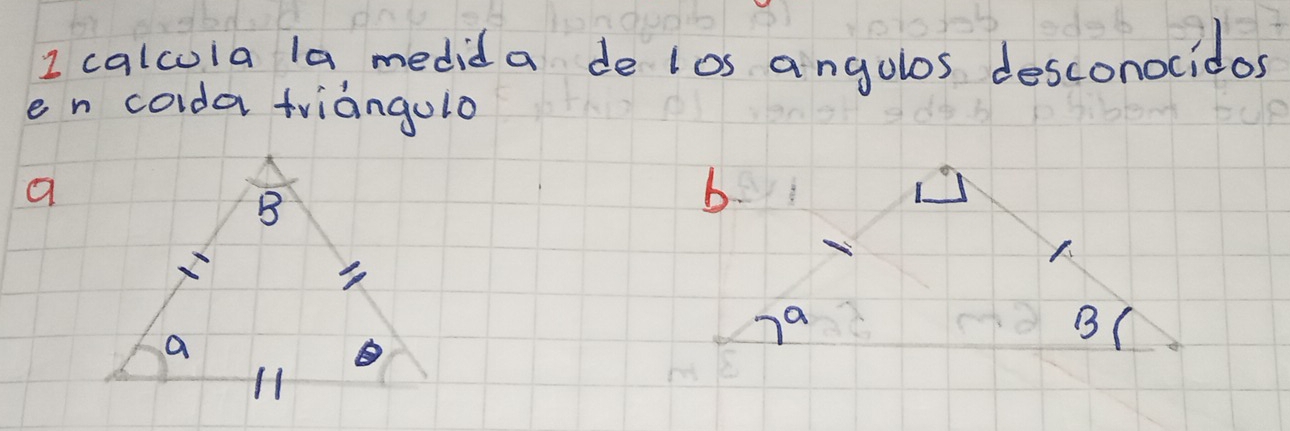 1 calcula la medida de los angulos desconocidos
en cada triángulo
a
b.
B
a
θ
a
B